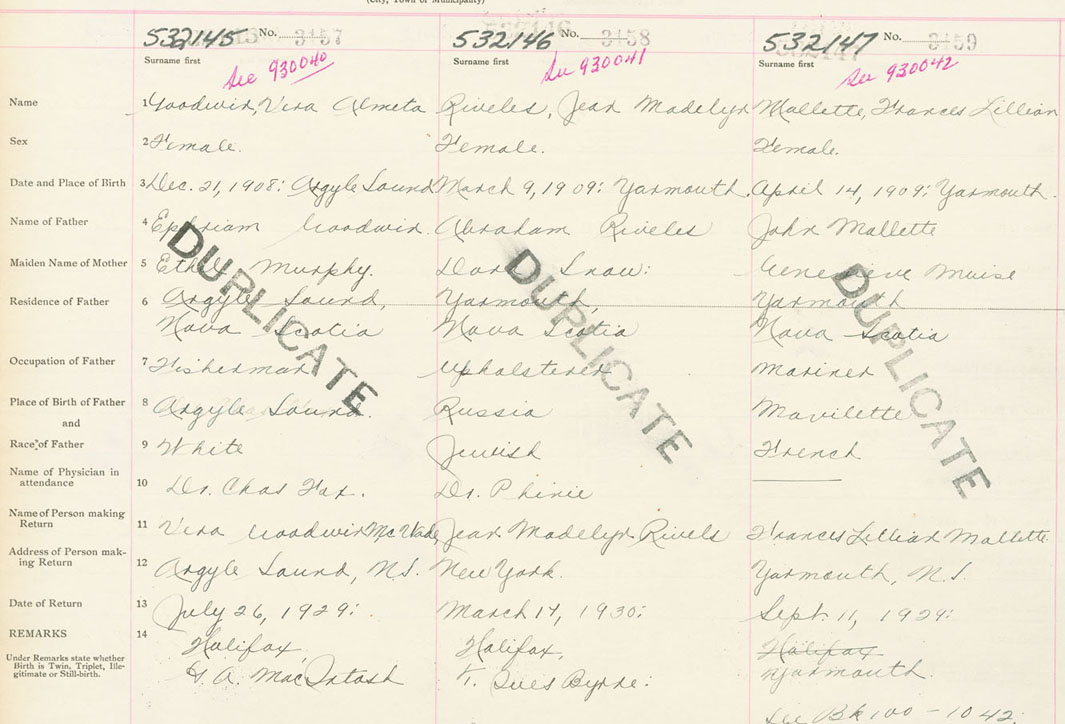 (City, Town or Municipality)
532145 No. 3157 532146 No. 3158 532147 No. 3159
Surname first Surname first Surname first
See 930040 See 930041 See 930042
Name 1 Goodwin, Vera Almeta Riveles, Jean Madelyn Mallette, Frances Lillian
Sex 2 Female. Female. Female.
Date and Place of Birth 3 Dec. 21, 1908: Argyle Sound March 9, 1909: Yarmouth. April 14, 1909: Yarmouth.
Name of Father 4 Ephriam Goodwin. Abraham Riveles John Mallette
Maiden Name of Mother 5 Ethel Murphy. Snow: Genevieve Muise
Residence of Father 6 Argyle Sound, Yarmouth, Yarmouth
Nova Scotia Nova Scotia Nova Scotia
Occupation of Father 7 Fisherman Upholsterer Mariner
Place of Birth of Father 8 Argyle Sound. Russia Mavilette
and
Race of Father 9 White Jewish French
Name of Physician in
attendance 10 Dr. Chas Fox. Dr. Phinie
Name of Person making
Return 11 Vera Goodwin McWade Jean Madelyn Rivels Frances Lillian Mallette
Address of Person mak-
ing Return 12 Argyle Sound, N.S. New York. Yarmouth, N.S.
Date of Return 13 July 26, 1929: March 17, 1930: Sept. 11, 1929:
REMARKS 14 Halifax, Halifax, Halifax
Under Remarks state whether
Birth is Twin, Triplet, Ille-
gitimate or Still-birth.
A. MacIntosh T. Ives Byrne: Yarmouth.
See Bk 100 - 1042
DUPLICATE DUPLICATE DUPLICATE